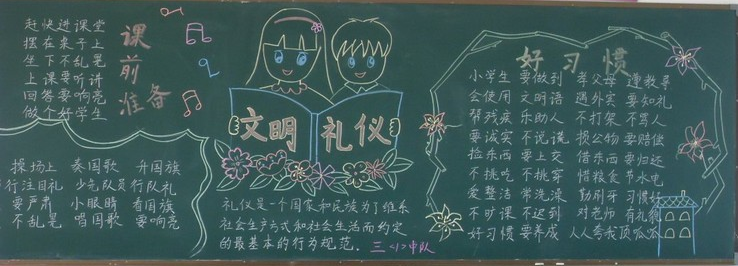 赶快进课堂
摆在桌子上
坐下不乱晃
上课要听讲
回答要响亮
做个好学生
课前准备
操场上 奏国歌 升国旗
行注目礼 少先队员行队礼
要严肃 小眼睛 看国旗
不乱晃 唱国歌 要响亮
文明礼仪
礼仪是一个国家和民族为了维系
社会生产方式和社会生活而约定
的最基本的行为规范.
三〈1〉中队
好习惯
小学生 要做到 孝父母 遵教导
会使用 文明语 遇外宾 要知礼
帮残疾 乐助人 不打架 不骂人
要诚实 不说谎 损公物 要赔偿
捡东西 要上交 借东西 要归还
不挑吃 不挑穿 惜粮食 节水电
爱整洁 常洗澡 勤刷牙 习惯好
不旷课 不迟到 对老师 有礼貌
好习惯 要养成 人人夸我顶呱呱